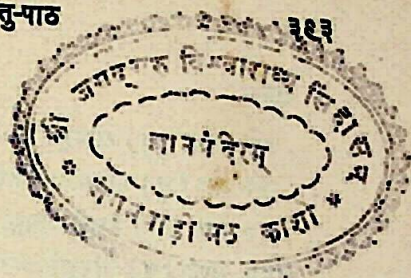 तु-पाठ
३९३
श्री जगद्गुरु विश्वाराध्य सिंहासन
ज्ञानमंदिरम्
जंगमवाड़ी मठ काशी